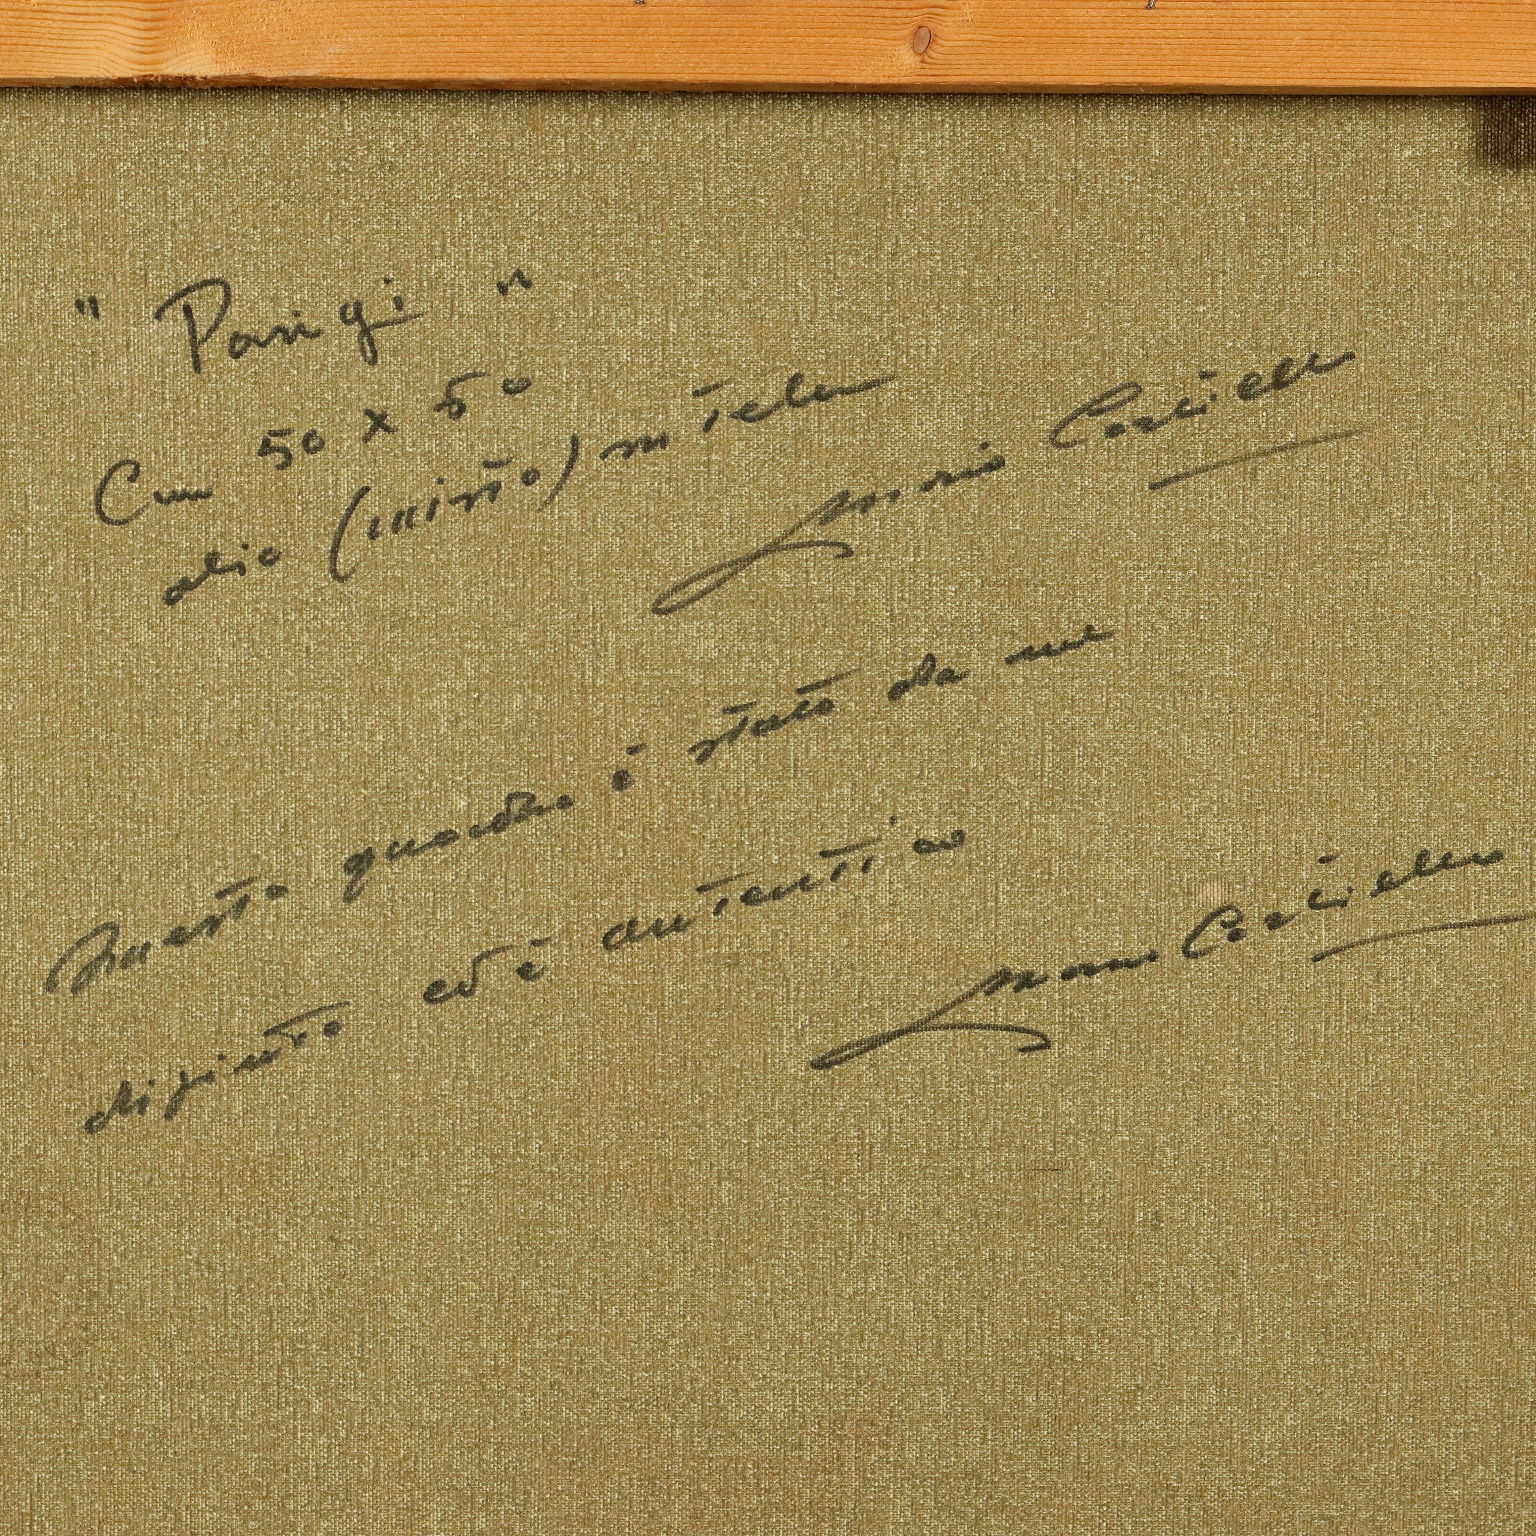 " Parigi "
Cm 50 x 50
olio (misto) su tela
Mario Coviello
Questo quadro è stato da me
dipinto ed è autentico
Mario Coviello